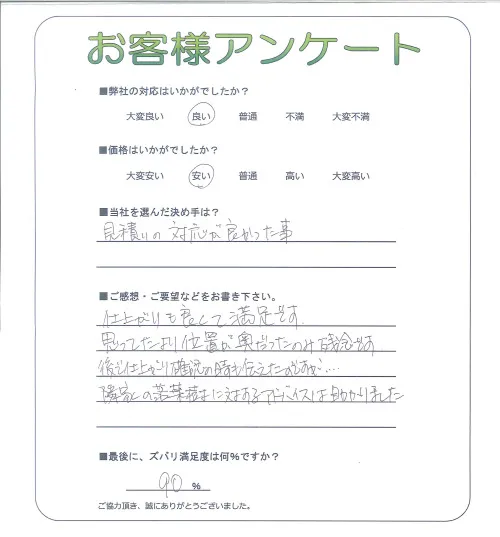 お客様アンケート
■弊社の対応はいかがでしたか？
大変良い 良い 普通 不満 大変不満
■価格はいかがでしたか？
大変安い 安い 普通 高い 大変高い
■当社を選んだ決め手は？
見積りの対応が良かった事
■ご感想・ご要望などをお書き下さい。
仕上がりも良くて満足です
思ってたより位置が奥だったのみ残念です
後で仕上がり確認の時も伝えたのですが、…
隣家との落葉 に対するアドバイスは助かりました
■最後に、ズバリ満足度は何％ですか？
90 ％
ご協力頂き、誠にありがとうございました。